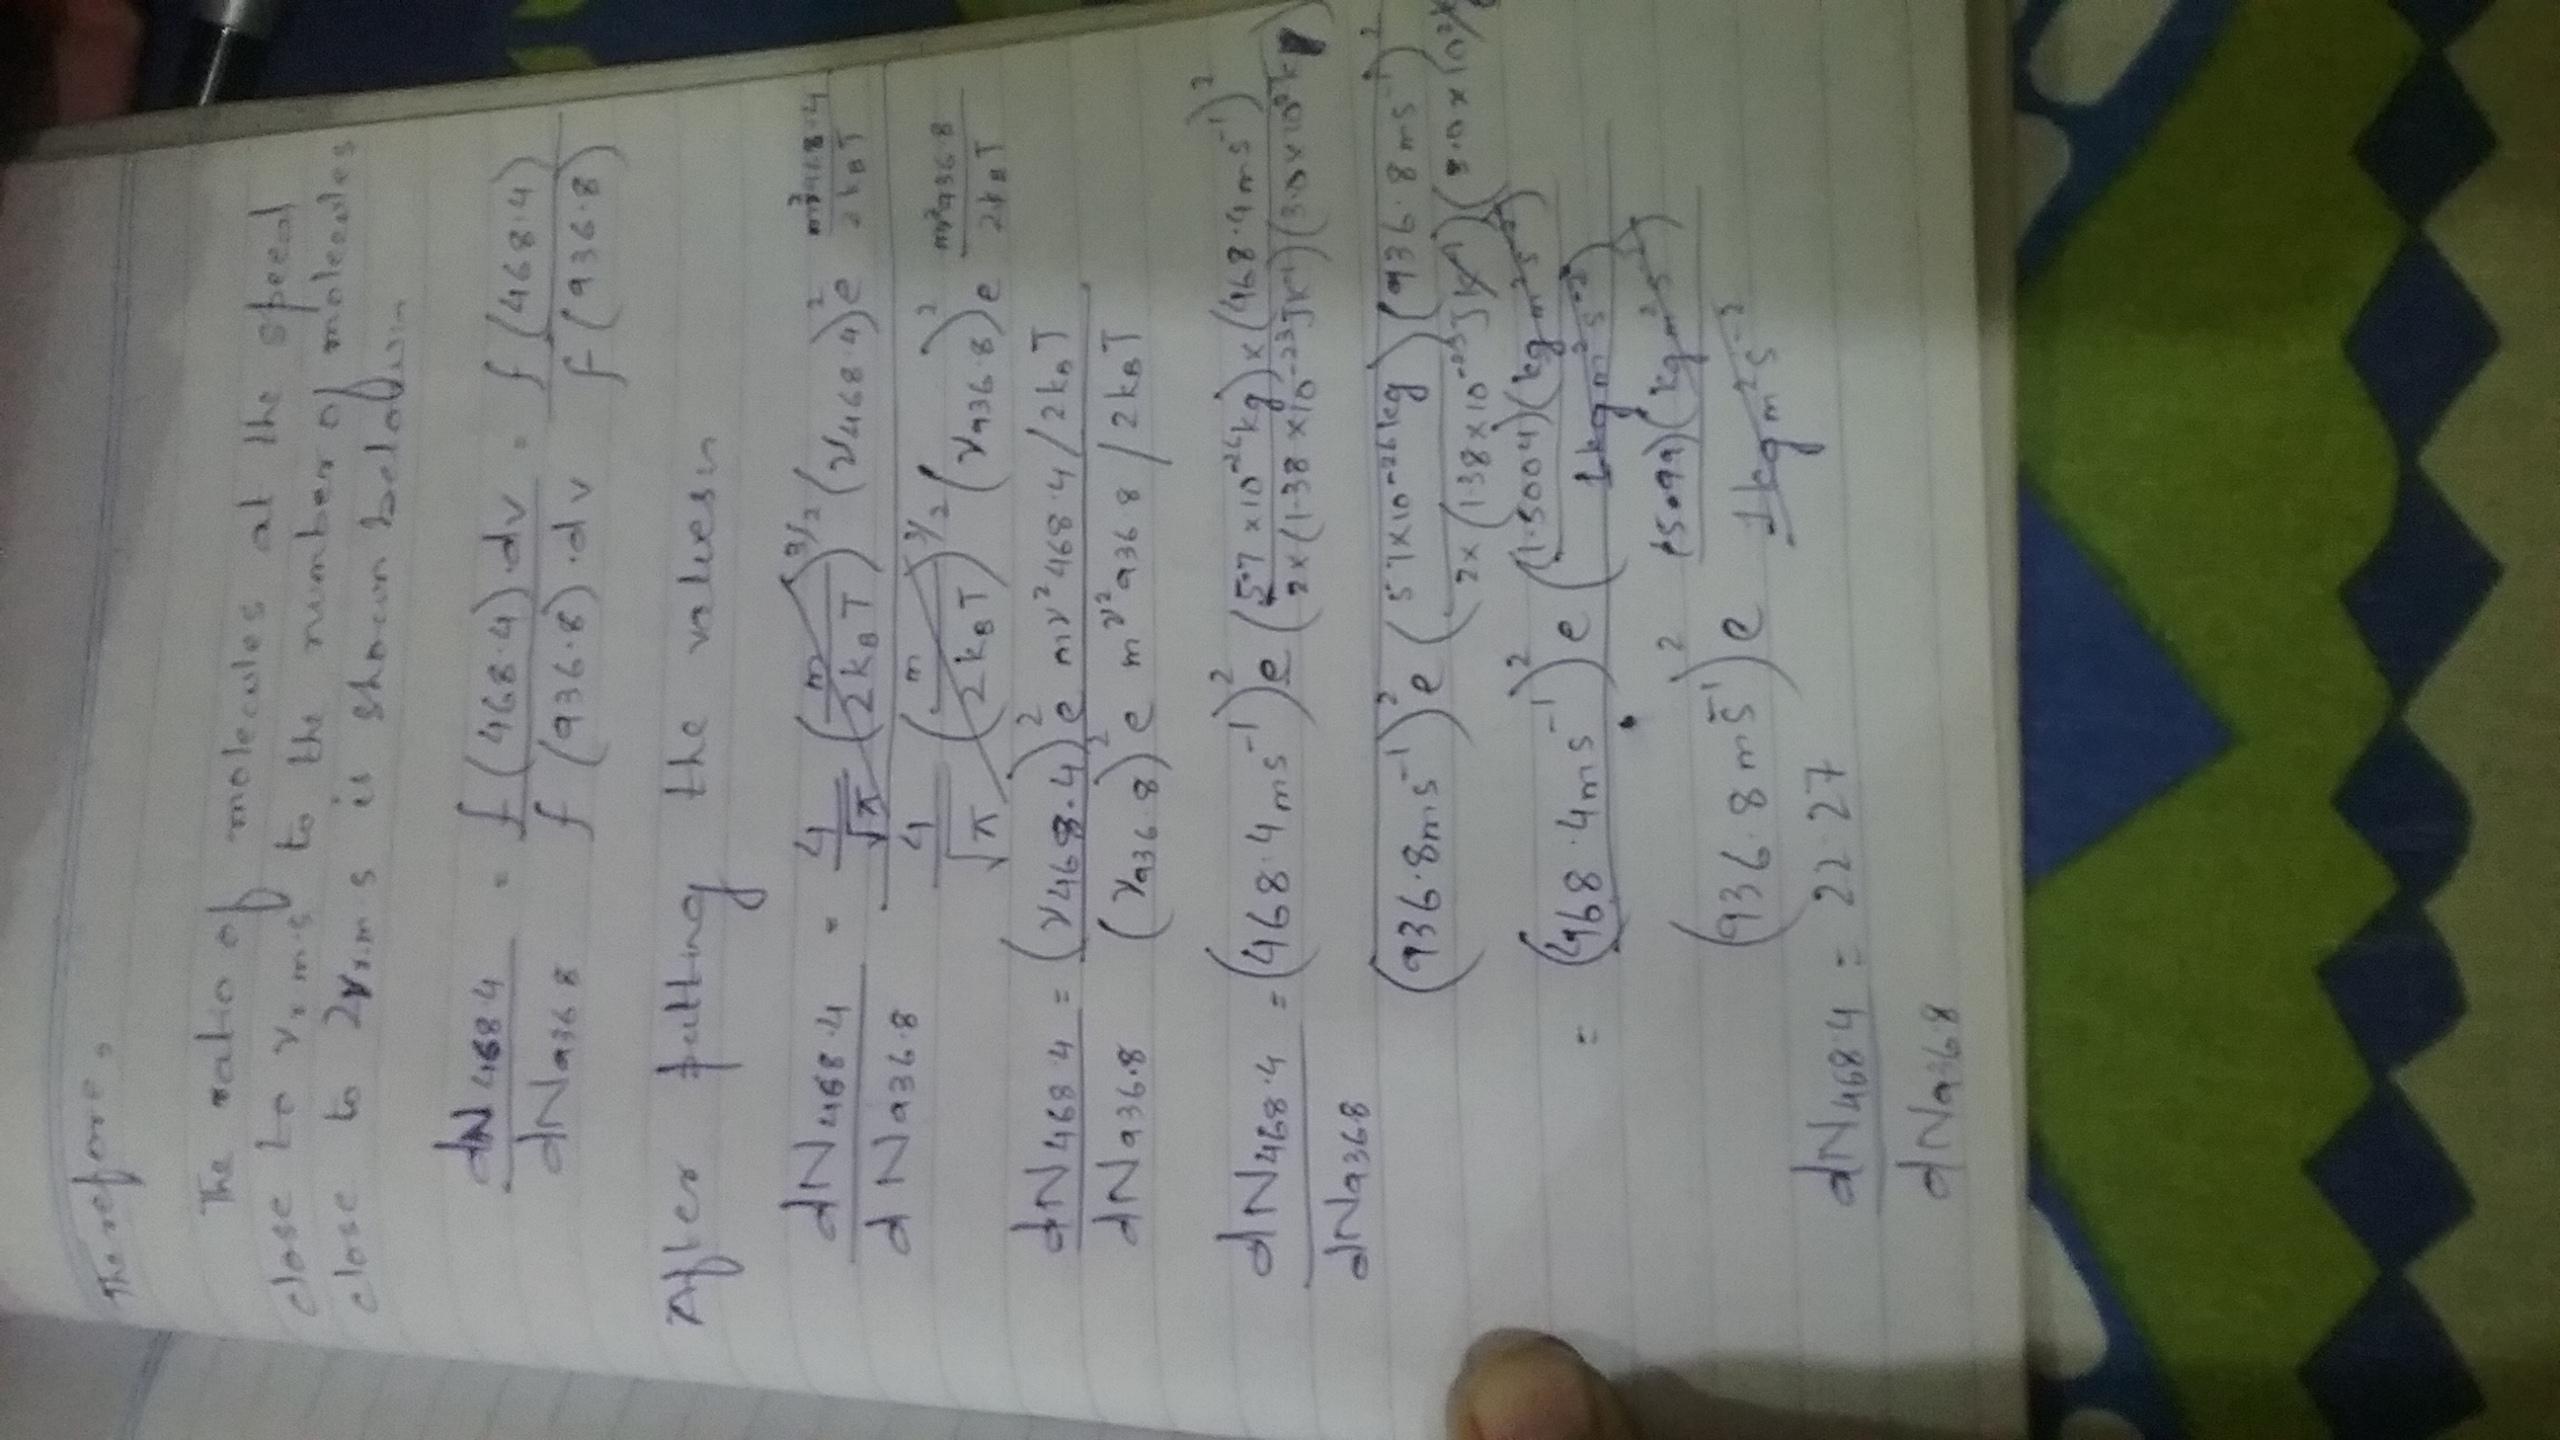 Therefore,
The ratio of molecules at the speed
close to vr.m.s to the number of molecules
close to 2vr.m.s is shown below:n
dN468.4 / dN936.8 = f(468.4).dv / f(936.8).dv = f(468.4) / f(936.8)
After putting the values:n
dN468.4 / dN936.8 = 4/√π (m/2kBT)^3/2 (v468.4)^2 e mv^2468.4/2kBT / 4/√π (m/2kBT)^3/2 (v936.8)^2 e mv^2936.8/2kBT
dN468.4 / dN936.8 = (v468.4)^2 e mv^2 468.4/2kBT / (v936.8)^2 e mv^2 936.8/2kBT
dN468.4 / dN936.8 = (468.4ms^-1)^2 e (5.7×10^-26kg)×(468.4ms^-1)^2 / 2×(1.38×10^-23JK^-1)(3.0×10^2k)
(936.8ms^-1)^2 e (5.7×10^-26kg)(936.8ms^-1)^2 / 2×(1.38×10^-23JK^-1)(3.0×10^2k)
= (468.4ms^-1)^2 e (1.5004)(kgm^2s^-2) / 1kgm^2s^-2
(936.8ms^-1)^2 e (kgm^2s^-2) / 1kgm^2s^-2
dN468.4 / dN936.8 = 22.27